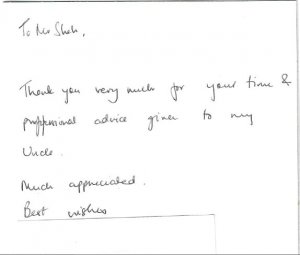 To Mr Shah,
Thank you very much for your time &
proffessional advice given to my
Uncle.
Much appreciated.
Best wishes